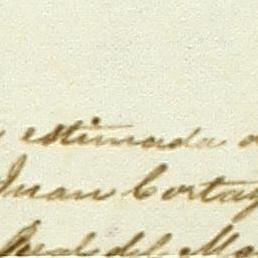 estimada
Juan Cortaz
del Ma